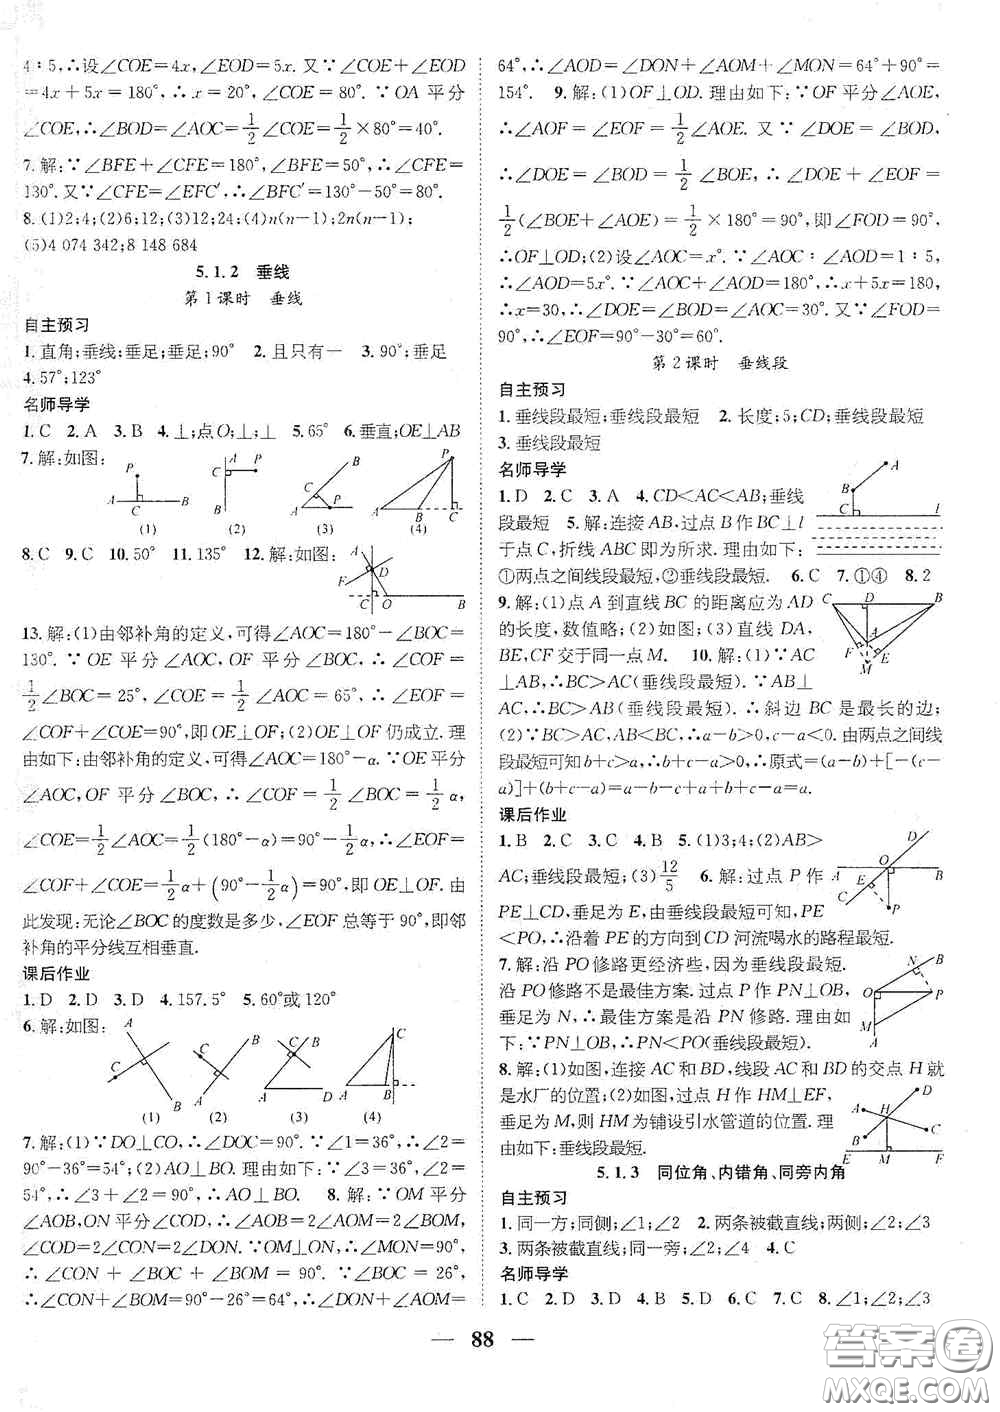 4∶5,∴设∠COE=4x,∠EOD=5x. 又∵∠COE+∠EOD
=4x+5x=180°,∴x=20°,∠COE=80°. ∵OA 平分
∠COE,∴∠BOD=∠AOC=1/2∠COE=1/2×80°=40°.
7. 解:∵∠BFE+∠CFE=180°,∠BFE=50°,∴∠CFE=
130°. 又∵∠CFE=∠EFC′,∴∠BFC′=130°-50°=80°.
8. (1)2;4;(2)6;12;(3)12;24;(4)n(n-1);2n(n-1);
(5)4 074 342;8 148 684
5.1.2 垂线
第1课时 垂线
自主预习
1. 直角;垂线;垂足;垂足;90° 2. 且只有一 3. 90°;垂足
4. 57°;123°
名师导学
1. C 2. A 3. B 4. ⊥;点O;⊥;⊥ 5. 65° 6. 垂直;OE⊥AB
7. 解:如图:
P A C B (1)
A C P B (2)
B C A P (3)
P A B C (4)
8. C 9. C 10. 50° 11. 135° 12. 解:如图:
A D F C O B
13. 解:(1)由邻补角的定义,可得∠AOC=180°-∠BOC=
130°. ∵OE 平分∠AOC,OF 平分∠BOC,∴∠COF=
1/2∠BOC=25°,∠COE=1/2∠AOC=65°,∴∠EOF=
∠COF+∠COE=90°,即OE⊥OF;(2)OE⊥OF仍成立. 理
由如下:由邻补角的定义,可得∠AOC=180°-α. ∵OE 平
分∠AOC,OF 平分∠BOC,∴∠COF=1/2∠BOC=1/2α,
∠COE=1/2∠AOC=1/2(180°-α)=90°-1/2α,∴∠EOF=
∠COF+∠COE=1/2α+(90°-1/2α)=90°,∴OE⊥OF. 由
此发现:无论∠BOC的度数是多少,∠EOF总等于90°,即邻
补角的平分线互相垂直.
课后作业
1. D 2. D 3. D 4. 157.5° 5. 60°或120°
6. 解:如图:
A C B (1)
B C A (2)
B C A D (3)
C A B (4)
7. 解:(1)∵DO⊥CO,∴∠DOC=90°. ∵∠1=36°,∴∠2=
90°-36°=54°;(2)AO⊥BO. 理由如下:∵∠3=36°,∠2=
54°,∴∠3+∠2=90°,∴AO⊥BO. 8. 解:∵OM平分
∠AOB,ON 平分∠COD,∴∠AOB=2∠AOM=2∠BOM,
∠COD=2∠CON=2∠DON. ∵OM⊥ON,∴∠MON=90°,
∴∠CON+∠BOC+∠BOM=90°. ∵∠BOC=26°,
∴∠CON+∠BOM=90°-26°=64°,∴∠DON+∠AOM=
64°,∴∠AOD=∠DON+∠AOM+∠MON=64°+90°=
154°. 9. 解:(1)OF⊥OD. 理由如下:∵OF平分∠AOE,
∴∠AOF=∠EOF=1/2∠AOE. 又∵∠DOE=∠BOD,
∴∠DOE=∠BOD=1/2∠BOE,∴∠DOE+∠EOF=
1/2(∠BOE+∠AOE)=1/2×180°=90°,即∠FOD=90°,
∴OF⊥OD;(2)设∠AOC=x°. ∵∠AOC∶∠AOD=1∶5,
∴∠AOD=5x°. ∵∠AOC+∠AOD=180°,∴x+5x=180,
∴x=30,∴∠DOE=∠BOD=∠AOC=30°. 又∵∠FOD=
90°,∴∠EOF=90°-30°=60°.
第2课时 垂线段
自主预习
1. 垂线段最短;垂线段最短 2. 长度;5;CD;垂线段最短
3. 垂线段最短
名师导学
1. D 2. C 3. A 4. CD<AC<AB;垂线
段最短 5. 解:连接AB,过点B作BC⊥l
于点C,折线ABC即为所求. 理由如下:
A B C l
①两点之间线段最短,②垂线段最短. 6. C 7. ①④ 8. 2
9. 解:(1)点A到直线BC的距离应为AD
的长度,数值略;(2)如图;(3)直线DA,
BE,CF交于同一点M. 10. 解:(1)∵AC
⊥AB,∴BC>AC(垂线段最短). ∵AB⊥
C D B A F E M
AC,∴BC>AB(垂线段最短). ∴斜边BC是最长的边;
(2)∵BC>AC,AB>AC,∴a-b>0,c-a<0. 由两点之间线
段最短可知b+c>a,∴b+c-a>0,∴原式=(a-b)+[-(c-
a)]+(b+c-a)=a-b-c+a+b+c-a=a.
课后作业
1. B 2. C 3. C 4. B 5. (1)3;4;(2)AB>
AC;垂线段最短;(3)12/5 6. 解:过点P作
PE⊥CD,垂足为E,由垂线段最短可知,PE
D O A E B C P
<PO,∴沿着PE的方向到CD河流喝水的路程最短.
7. 解:沿PO修路更经济些,因为垂线段最短.
沿PO修路不是最佳方案. 过点P作PN⊥OB,
垂足为N,∴最佳方案是沿PN修路. 理由如
下:∵PN⊥OB,∴PN<PO(垂线段最短).
B N O P M A
8. 解:(1)如图,连接AC和BD,线段AC和BD的交点H就
是水厂的位置;(2)如图,过点H作HM⊥EF,
垂足为M,则HM为铺设引水管道的位置. 理
由如下:垂线段最短.
D A H B C E M F
5.1.3 同位角、内错角、同旁内角
自主预习
1. 同一方;同侧;∠1;∠2 2. 两条被截直线;两侧;∠2;∠3
3. 两条被截直线;同一旁;∠2;∠4 4. C
名师导学
1. C 2. D 3. D 4. D 5. D 6. C 7. C 8. ∠1;∠2;∠3
88
答案圈
MXQE.COM